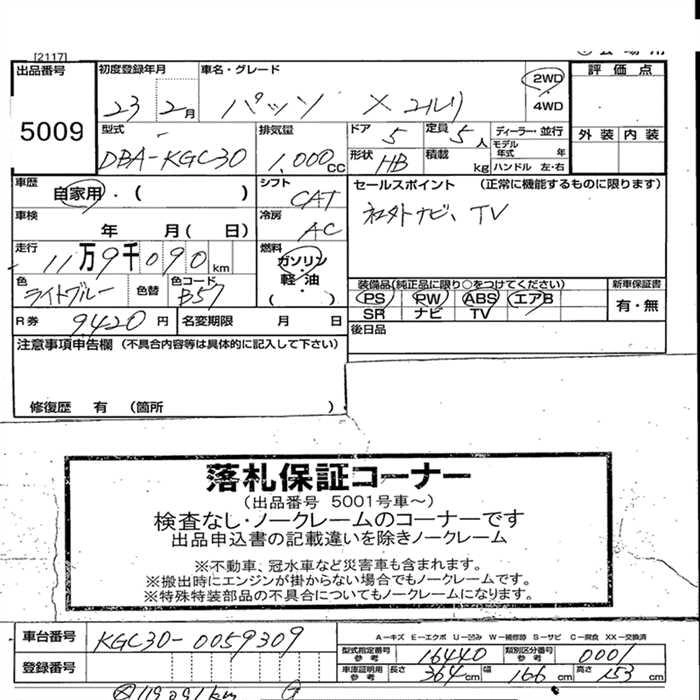 [2117]
出品番号 5009
初度登録年月 23 2月
車名・グレード パッソ X ユルリ
2WD
4WD
評価点
型式 DBA-KGC30
排気量 1,000cc
ドア 5
定員 5人
ディーラー・並行
モデル年式 年
外装 内装
形状 HB
積載 kg
ハンドル 左・右
車歴 自家用・( )
シフト CAT
セールスポイント (正常に機能するものに限ります)
社外ナビ、TV
車検 年 月( 日)
冷房 AC
走行 11万9千090km
燃料 ガソリン・軽油・( )
色 ライトブルー
色替
色コード B57
装備品(純正品に限り○をつけてください)
新車保証書
PS PW ABS エアB
SR ナビ TV
有・無
R券 9420円
名変期限 月 日
後日品
注意事項申告欄 (不具合内容等は具体的に記入して下さい)
修復歴 有 (箇所 )
落札保証コーナー
(出品番号 5001号車~)
検査なし・ノークレームのコーナーです
出品申込書の記載違いを除きノークレーム
※不動車、冠水車など災害車も含まれます。
※搬出時にエンジンが掛からない場合でもノークレームです。
※特殊特装部品の不具合についてもノークレームになります。
車台番号 KGC30-0059309
A-キズ E-エクボ U-凹み W-補修跡 S-サビ C-腐食 XX-交換済
型式指定番号参考 16440
類別区分番号参考 0001
登録番号
車庫証明用参考 長さ 364cm 幅 166cm 高さ 153cm
119091km